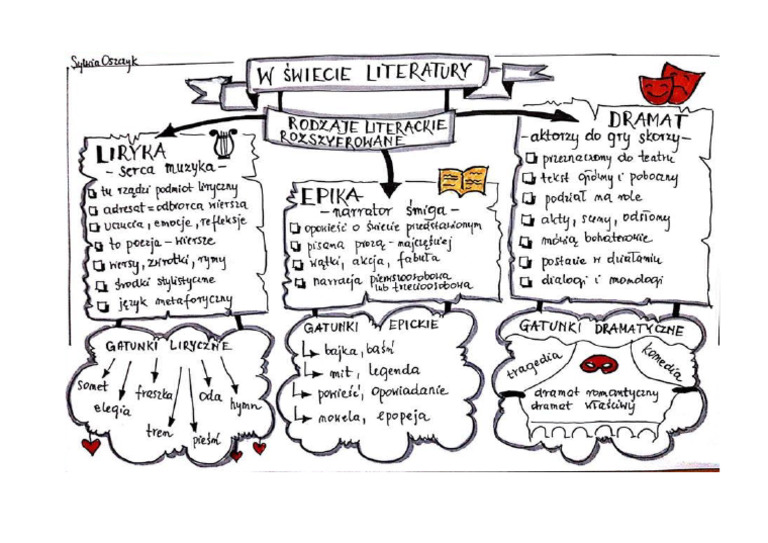 Sylwia Oszczyk
W ŚWIECIE LITERATURY
RODZAJE LITERACKIE
ROZSZYFROWANE
LIRYKA
- serca muzyka -
tu rządzi podmiot liryczny
adresat = odbiorca wiersza
uczucia, emocje, refleksje
to poezja - wiersze
wersy, zwrotki, rymy
środki stylistyczne
język metaforyczny
GATUNKI LIRYCZNE
sonet
elegia
fraszka
tren
pieśń
oda
hymn
EPIKA
- narrator śmiga -
opowieść o świecie przedstawionym
pisana prozą - najczęściej
wątki, akcja, fabuła
narracja pierwszoosobowa
lub trzecioosobowa
GATUNKI EPICKIE
bajka, baśń
mit, legenda
powieść, opowiadanie
nowela, epopeja
DRAMAT
- aktorzy do gry skorzy -
przeznaczony do teatru
tekst główny i poboczny
podział na role
akty, sceny, odsłony
mówią bohaterowie
postacie w działaniu
dialogi i monologi
GATUNKI DRAMATYCZNE
tragedia
komedia
dramat romantyczny
dramat właściwy